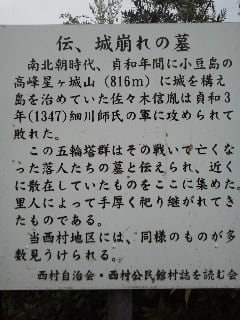 伝、城崩れの墓
南北朝時代、貞和年間に小豆島の
高峰星ヶ城山(816m)に城を構え
島を治めていた佐々木信胤は貞和3
年(1347)細川師氏の軍に攻められて
敗れた。
この五輪塔群はその戦いで亡くな
った落人たちの墓と伝えられ、近く
に散在していたものをここに集めた。
里人によって手厚く祀り継がれてき
たものである。
当西村地区には、同様のものが多
数見うけられる。
西村自治会・西村公民館村誌を読む会